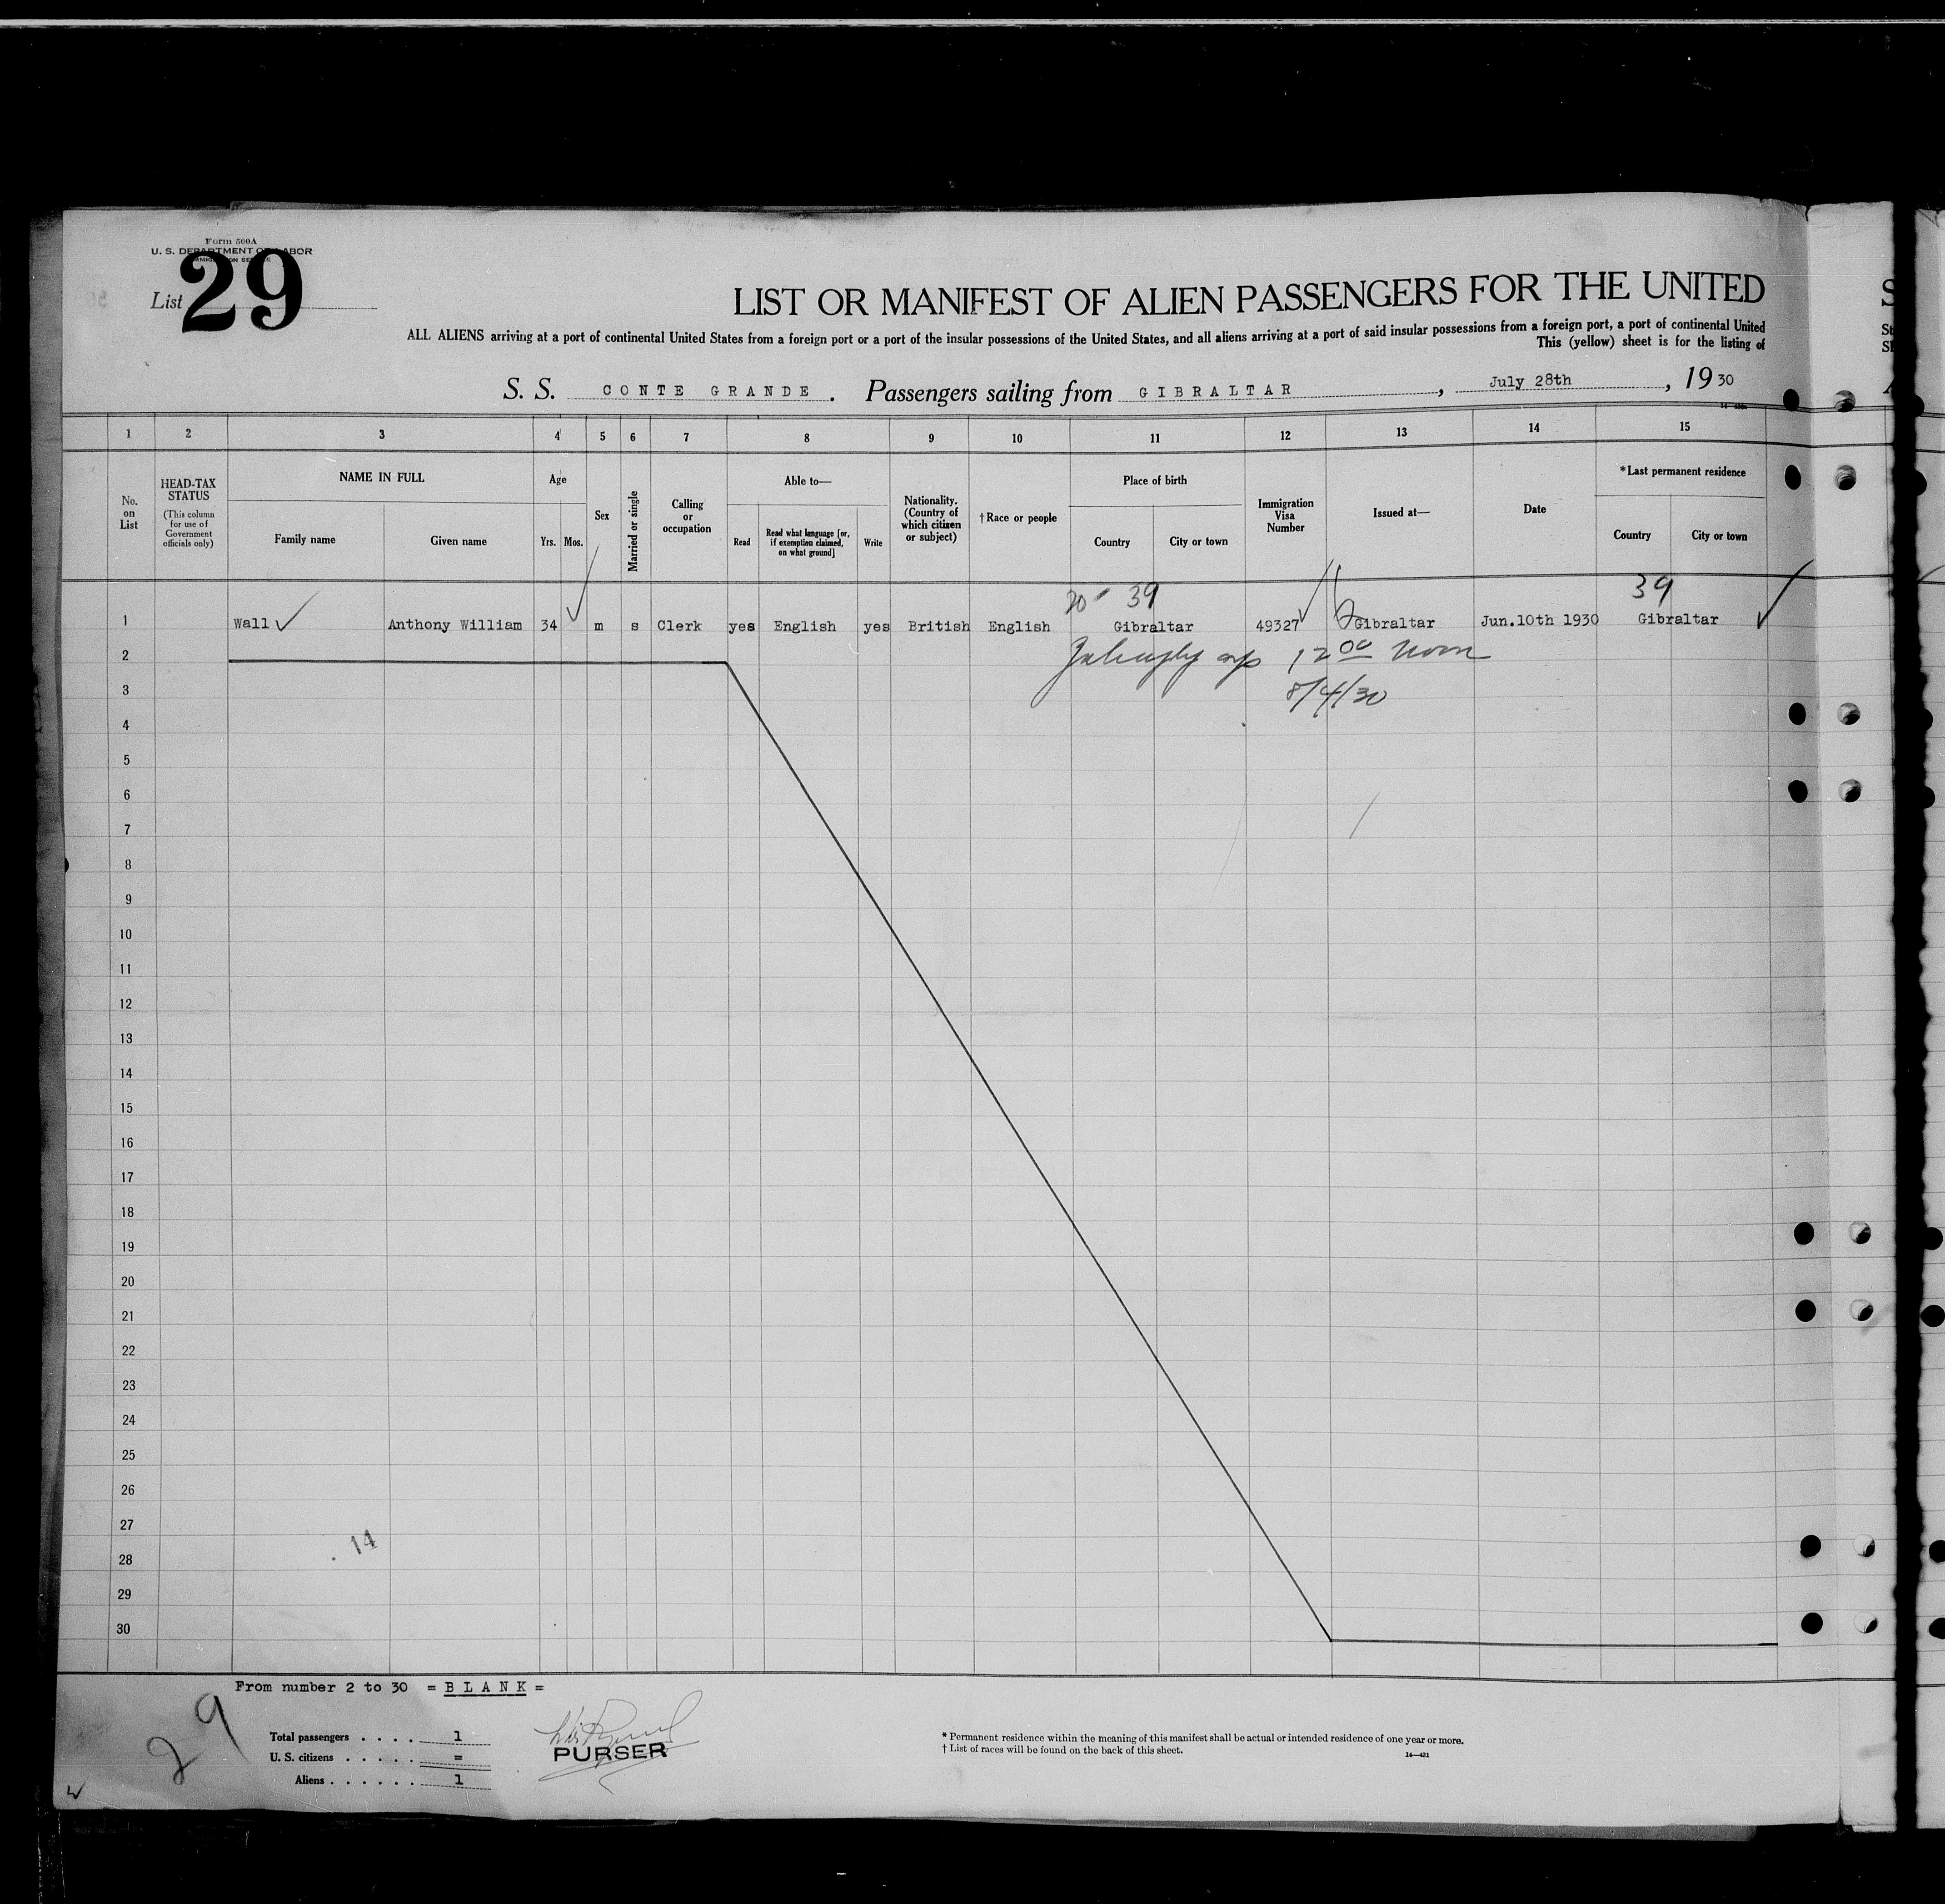 Form 500A
U. S. DEPARTMENT OF LABOR
IMMIGRATION SERVICE
List 29
LIST OR MANIFEST OF ALIEN PASSENGERS FOR THE UNITED
ALL ALIENS arriving at a port of continental United States from a foreign port or a port of the insular possessions of the United States, and all aliens arriving at a port of said insular possessions from a foreign port, a port of continental United
This (yellow) sheet is for the listing of
S. S. CONTE GRANDE. Passengers sailing from GIBRALTAR, July 28th, 1930
1 2 3 4 5 6 7 8 9 10 11 12 13 14 15
No. on List
HEAD-TAX STATUS
(This column for use of Government officials only)
NAME IN FULL
Family name
Given name
Age
Yrs. Mos.
Sex
Married or single
Calling or occupation
Able to—
Read
Read what language [or, if exemption claimed, on what ground]
Write
Nationality. (Country of which citizen or subject)
†Race or people
Place of birth
Country
City or town
Immigration Visa Number
Issued at—
Date
*Last permanent residence
Country
City or town
39 39
1 Wall Anthony William 34 m s Clerk yes English yes British English Gibraltar 49327 Gibraltar Jun.10th 1930 Gibraltar
2 12 00 Noon
3 8/4/30
4
5
6
7
8
9
10
11
12
13
14
15
16
17
18
19
20
21
22
23
24
25
26
27
14
28
29
30
From number 2 to 30 = BLANK =
29
Total passengers . . . . 1
U. S. citizens . . . . . =
Aliens . . . . . . 1
PURSER
* Permanent residence within the meaning of this manifest shall be actual or intended residence of one year or more.
† List of races will be found on the back of this sheet.
14—421